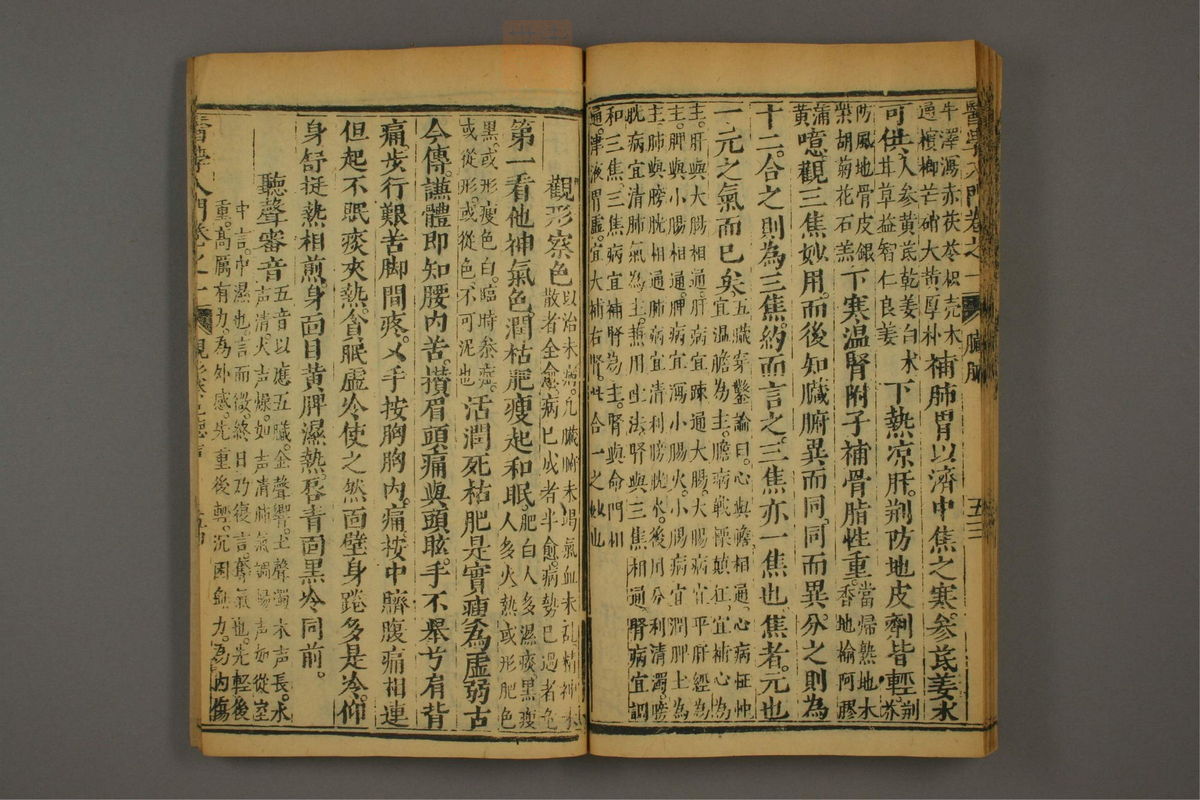 醫學入門卷之一 臟腑 五三
牛澤瀉赤茯苓枳壳木
過檳榔芒硝大黃厚朴
補肺胃以濟中焦之寒參芪姜朮
可供人參黃芪乾姜白朮
甘草益智仁良姜
下熱凉肝荆防地皮劑皆輕荆芥
防風地骨皮銀
柴胡菊花石羔
下寒温腎附子補骨脂性重當歸熟地木
香地榆阿膠
蒲黃
噫觀三焦妙用而後知臟腑異而同同而異分之則為
十二合之則為三焦約而言之三焦亦一焦也焦者元也
一元之氣而已矣
五臟穿鑿論曰心與膽相通心病怔忡
宜温膽為主膽病戰慄癲狂宜補心為
主肝與大腸相通肝病宜疎通大腸大腸病宜平肝經為
主脾與小腸相通脾病宜瀉小腸火小腸病宜潤脾土為
主肺與膀胱相通肺病宜清利膀胱水後用分利清濁膀
胱病宜清肺氣為主兼用吐法腎與三焦相通腎病宜調
和三焦三焦病宜補腎為主腎與命門相
通津液胃虛宜大補右腎此合一之妙也
觀形察色
以治未病凡臟腑未竭氣血未亂精神未
散者全愈病已成者半愈病勢已過者危
第一看他神氣色潤枯肥瘦起和眠肥白人多濕痰黑瘦
人多火熱或形肥色
黑或形瘦色白臨時叅齊
或從形或從色不可泥也
活潤死枯肥是實瘦為虛弱古
今傳謙體即知腰內苦攢眉頭痛與頭眩手不舉兮肩背
痛步行艱苦脚間疼乂手按胸胸內痛按中臍腹痛相連
但起不眠痰夾熱貪眠虛冷使之然面壁身踡多是冷仰
身舒挺熱相煎身面目黃脾濕熱唇青面黑冷同前
聽聲審音
五音以應五臟金聲響土聲濁木声長水
声清火声燥如声清肺氣調暢声如從室
中言中濕也言而微終日乃復言奪氣也先輕後
重高厲有力為外感先重後輕沉困無力為內傷
醫學入門卷之一 觀形察色聽声 五四